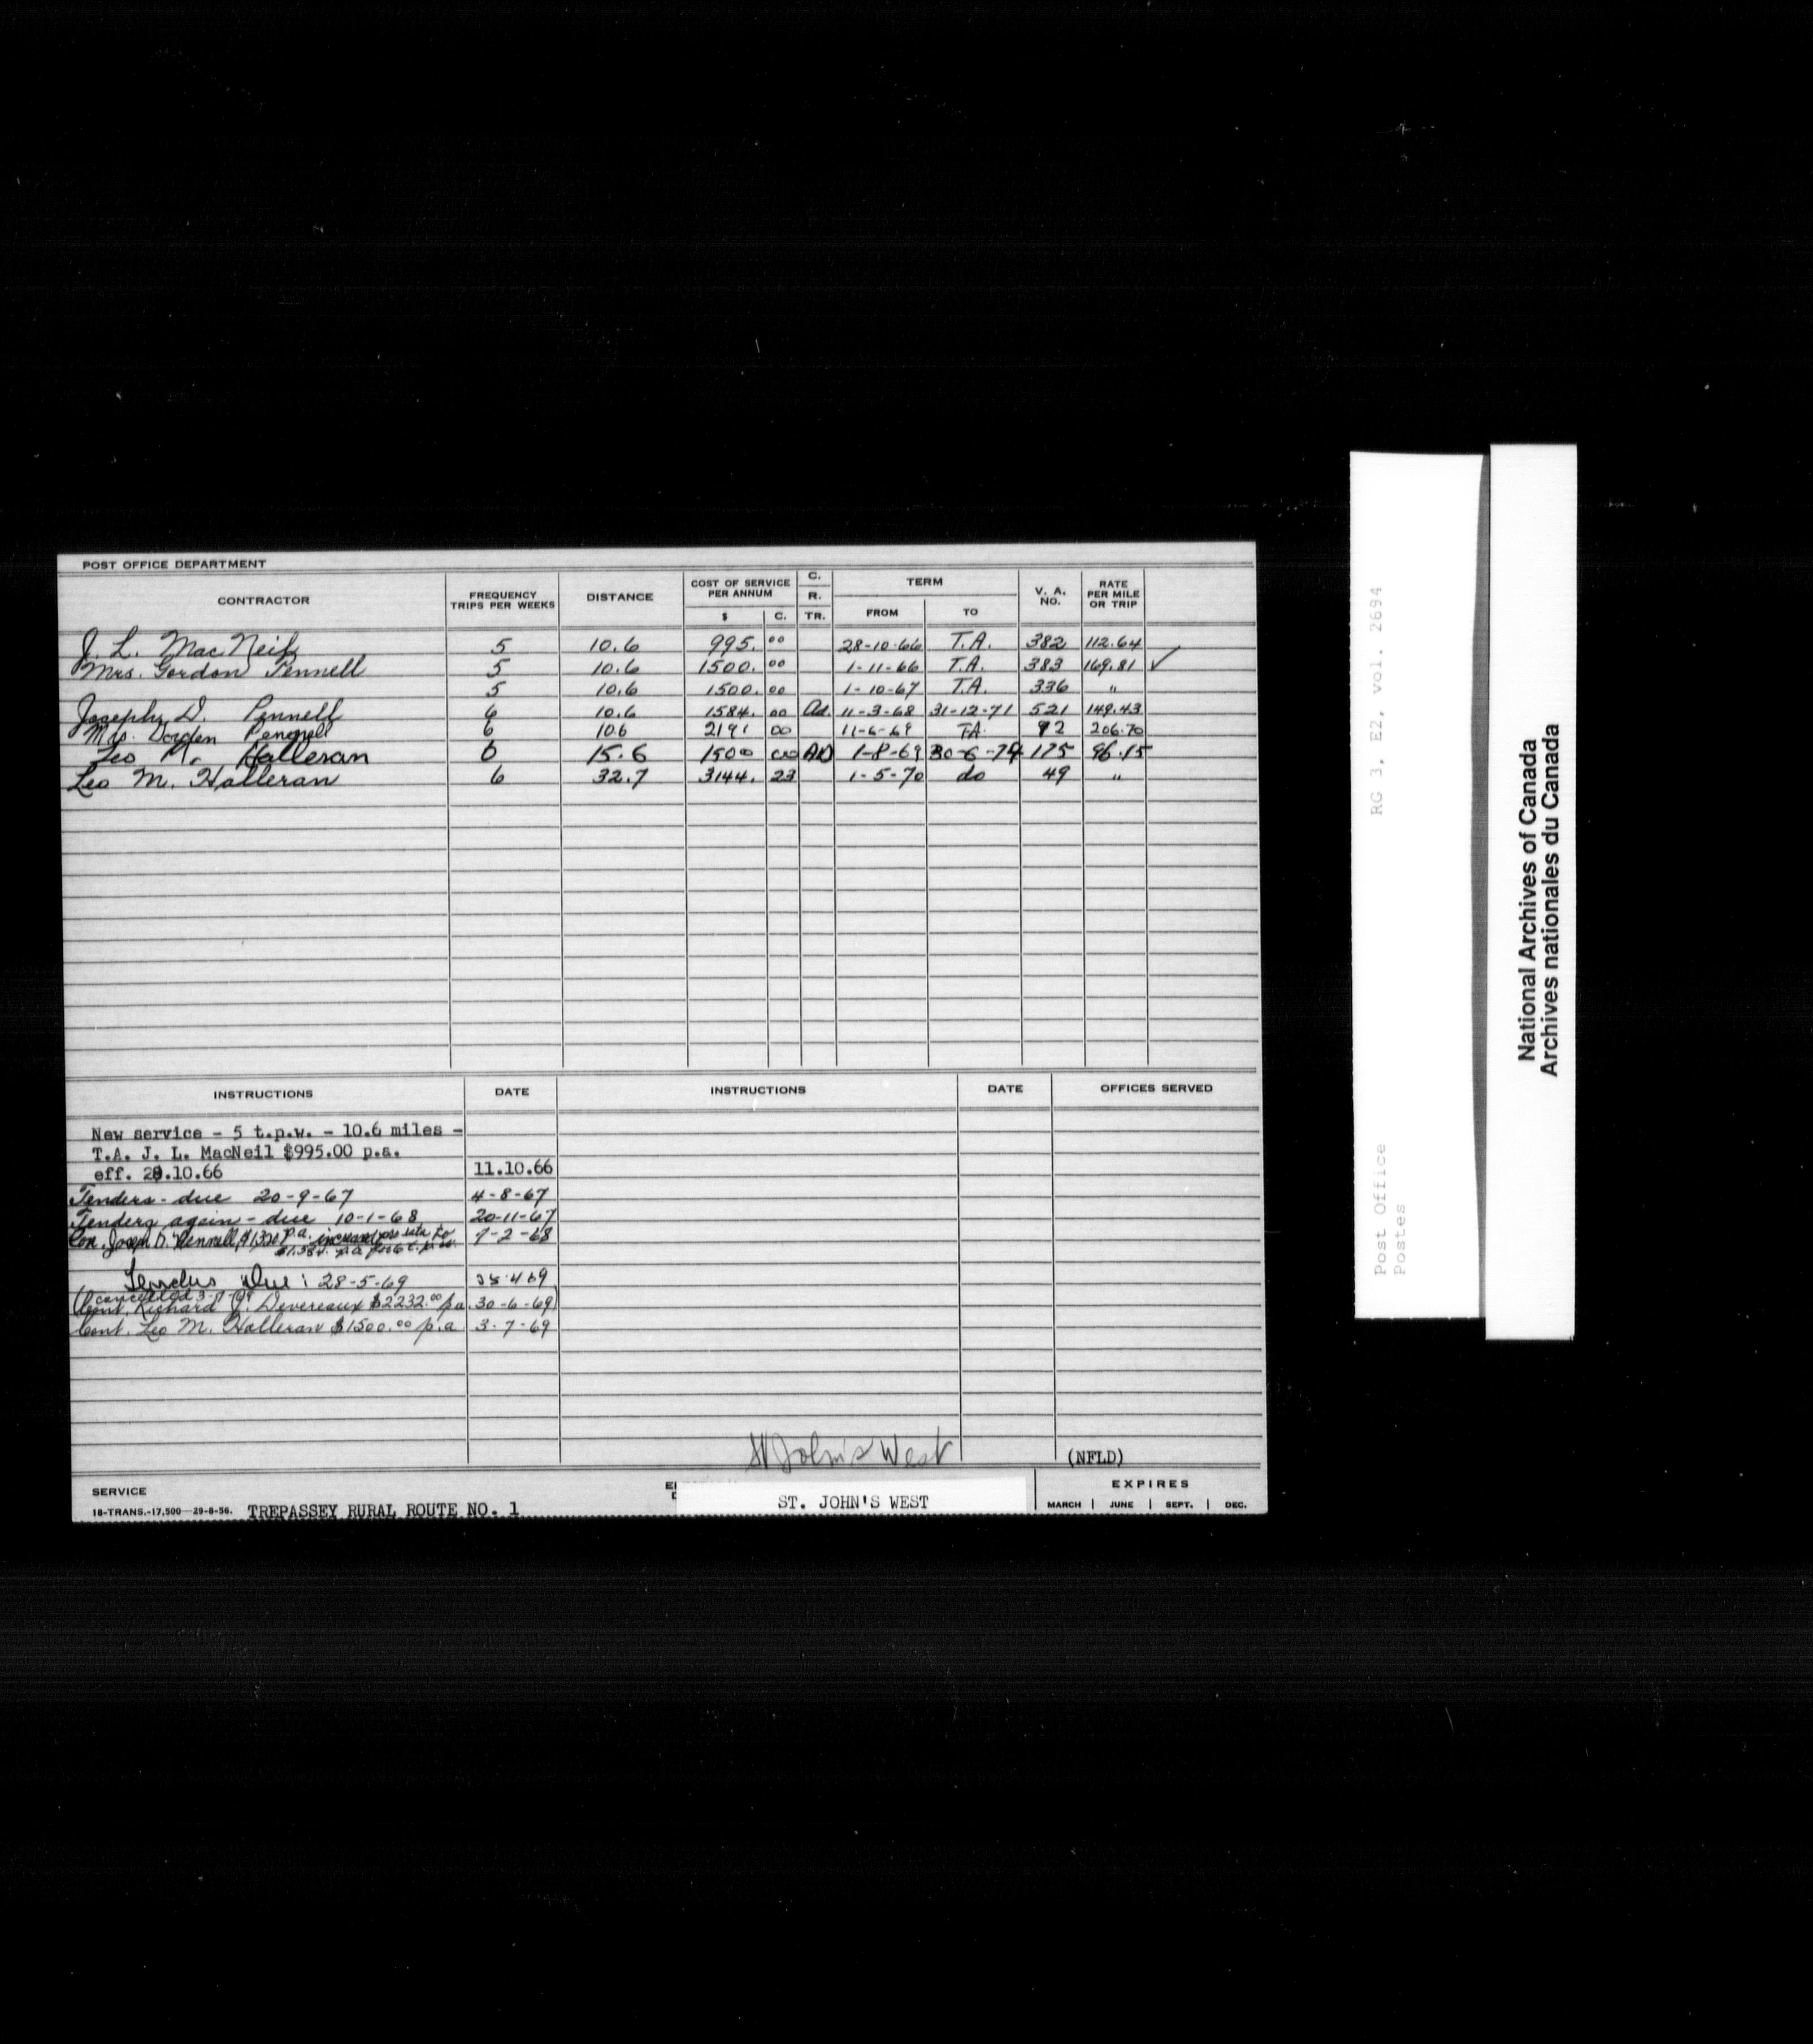 POST OFFICE DEPARTMENT
CONTRACTOR FREQUENCY TRIPS PER WEEKS DISTANCE COST OF SERVICE PER ANNUM $ C. C. R. TR. TERM FROM TO V. A. NO. RATE PER MILE OR TRIP
J. L. MacNeil 5 10.6 995. 00 28-10-66 T.A. 382 112.64
Mrs. Gordon Pennell 5 10.6 1500. 00 1-11-66 T.A. 383 169.81 ✓
5 10.6 1500. 00 1-10-67 T.A. 336 "
Joseph D. Pennell 6 10.6 1584. 00 Ad. 11-3-68 31-12-71 521 149.43
Mrs. Pennell 6 10.6 2191 00 11-6-69 T.A. 92 206.70
Leo M. Halleran 6 15.6 1500 00 AD 1-8-69 30-6-74 175 96.15
Leo M. Halleran 6 32.7 3144. 23 1-5-70 do 49 "
INSTRUCTIONS DATE INSTRUCTIONS DATE OFFICES SERVED
New service - 5 t.p.w. - 10.6 miles -
T.A. J. L. MacNeil $995.00 p.a.
eff. 28.10.66 11.10.66
Tenders - due 20-9-67 4-8-67
Tenders again - due 10-1-68 20-11-67
Con. Joseph D. Pennell $1320 p.a. increased pro rata to 9-2-68
$1,584. p.a. for 6 t.p.w.
Tenders Due: 28-5-69
cancelled 3-7-69
(Cont. Richard J. Devereaux $2232.00 p.a. 30-6-69)
Cont. Leo M. Halleran $1500.00 p.a. 3-7-69
St John's West
(NFLD)
SERVICE
18-TRANS.-17,500—29-8-56. TREPASSEY RURAL ROUTE NO. 1
ST. JOHN'S WEST
EXPIRES
MARCH | JUNE | SEPT. | DEC.
Post Office RG 3, E2, vol. 2694
Postes
National Archives of Canada
Archives nationales du Canada